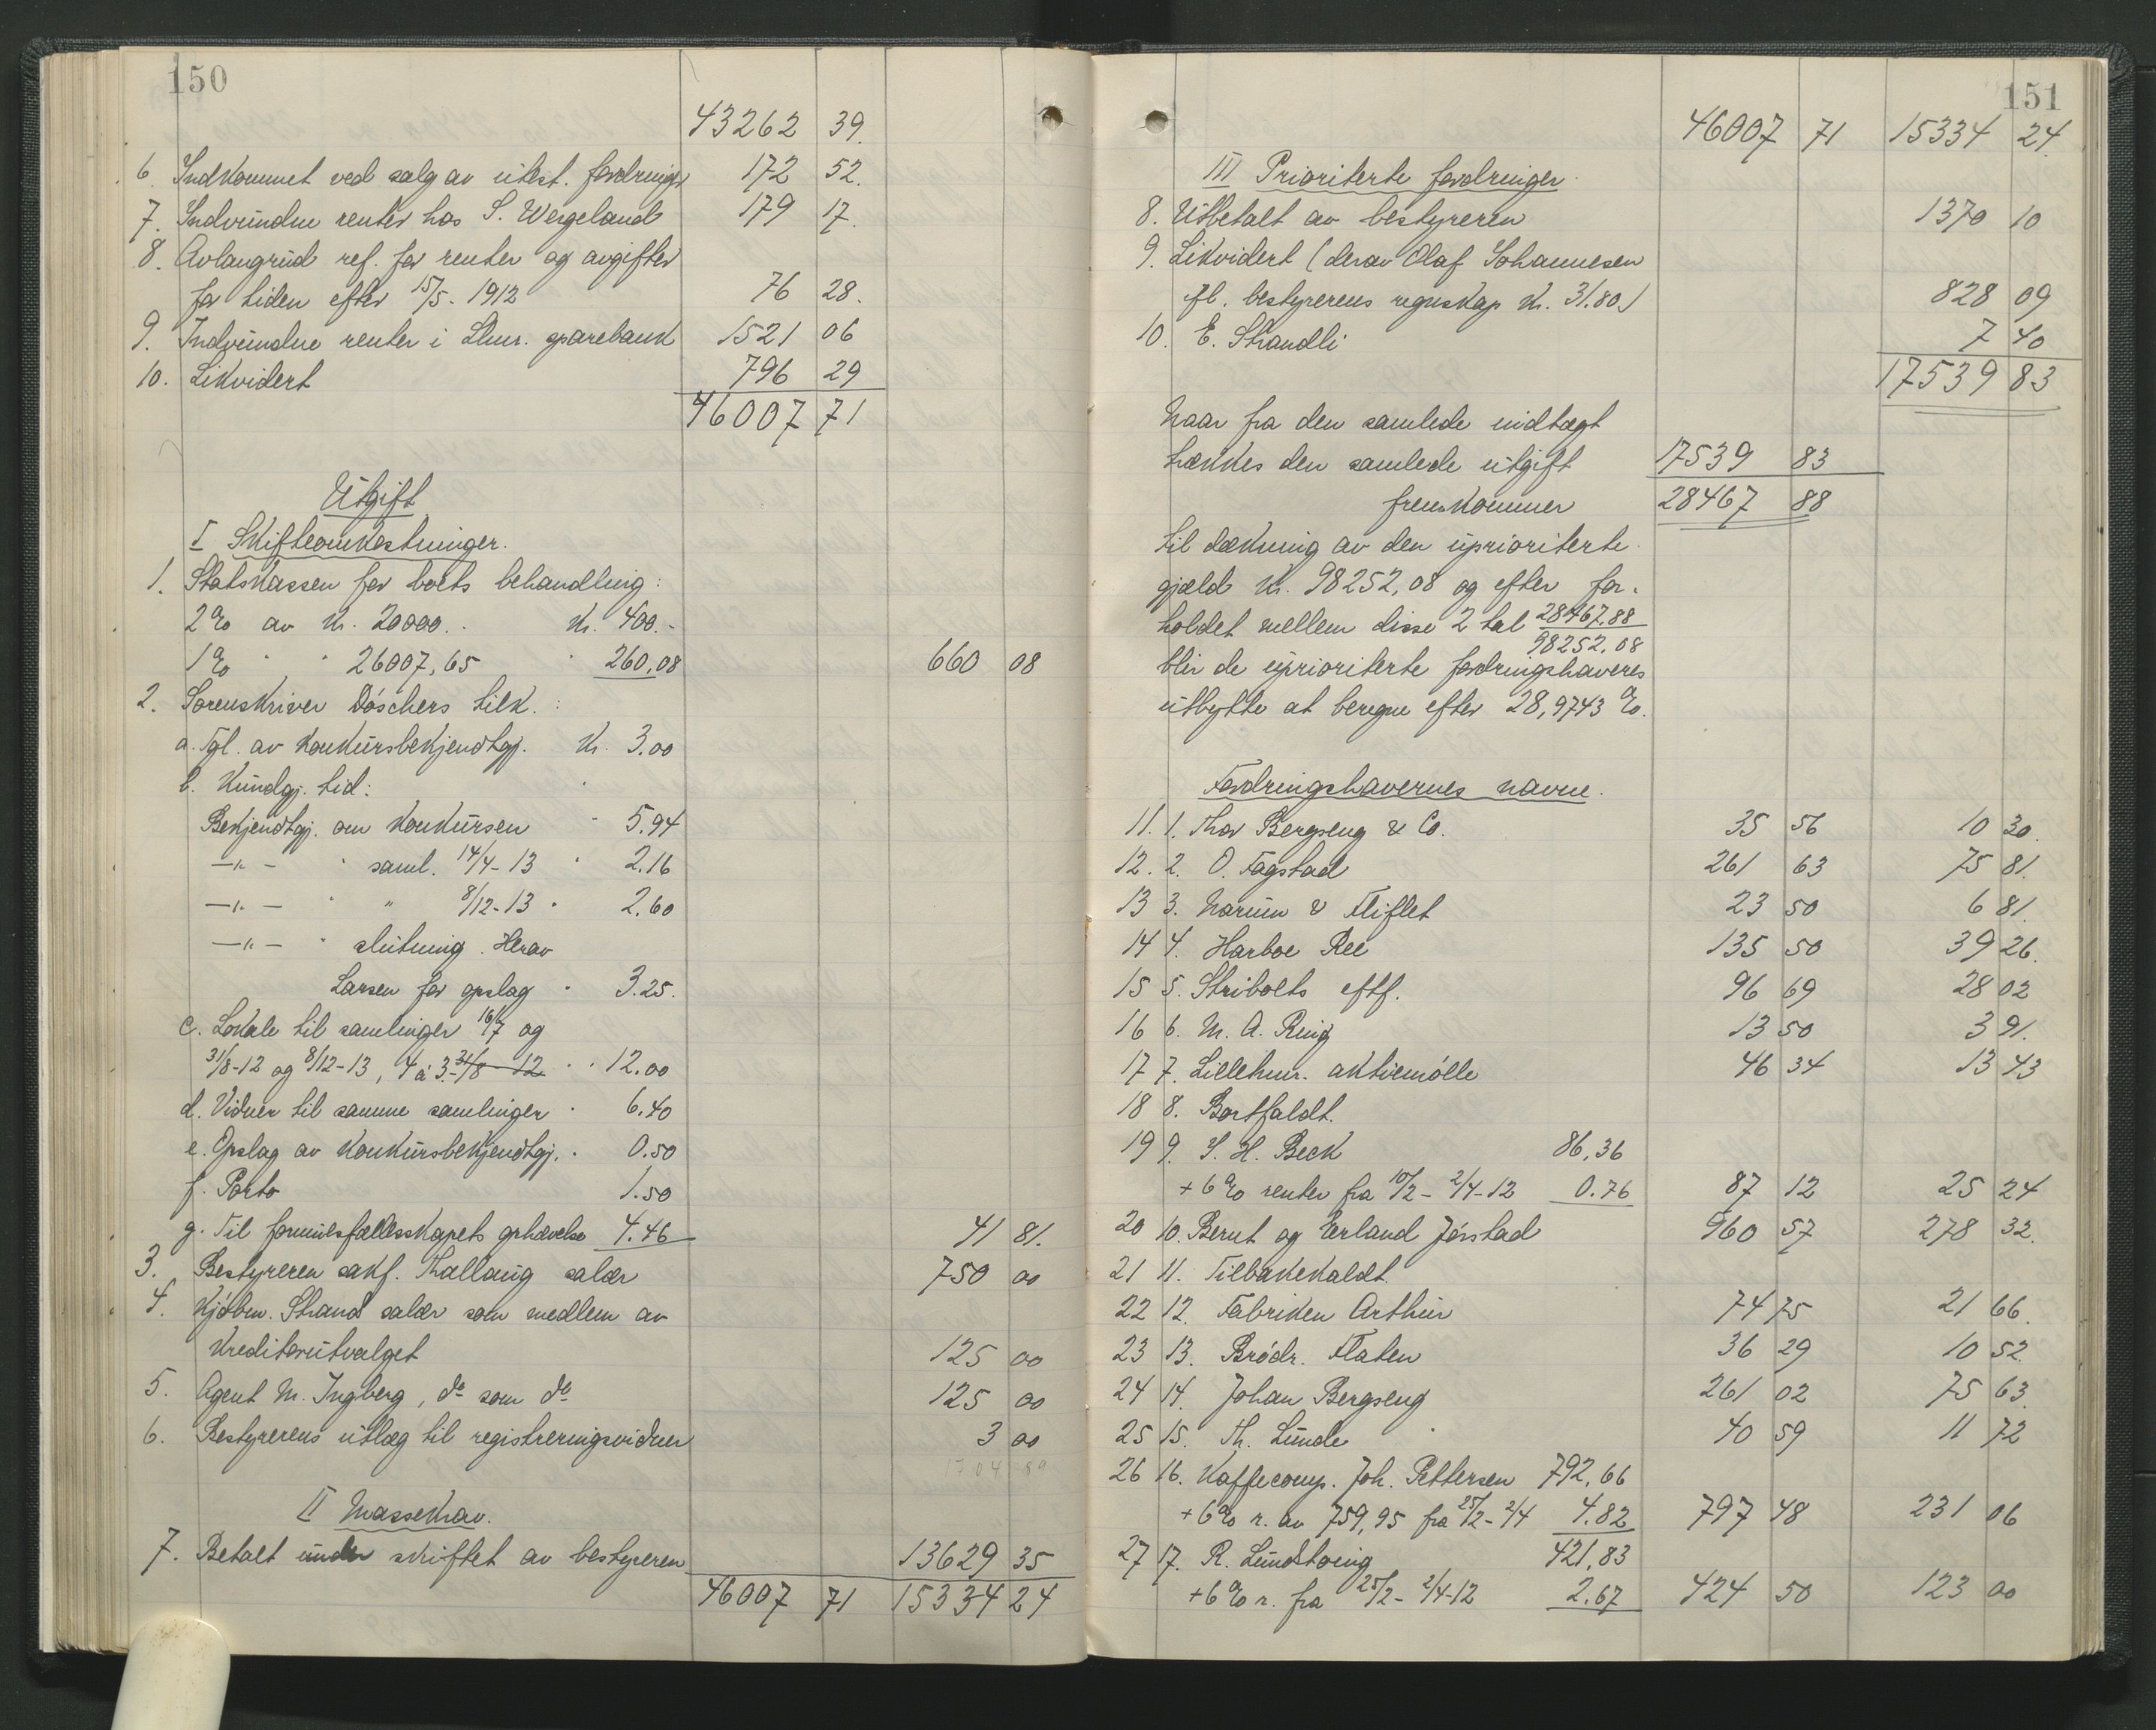 150
43262 39.
6. Indkommet ved salg av utest. fordringer 172 52.
7. Indvundne renter hos S. Wergeland 179 17.
8. Avlangrud ref. for renter og avgifter
for tiden efter 15/5-1912 76 28.
9. Indvundne renter i Lhmr. sparebank 1521 06
10. Likvidert 796 29
46007 71
Utgift
I Skifteomkostninger.
1. Statskassen for boets behandling:
2% av Kr. 20000.- Kr. 400.-
1% " " 26007,65 " 260.08 660 08
2. Sorenskriver Döschers tilk. :
a. Tgl. av konkursbekjendtgj. Kr. 3.00
b. Kundgj. tid:
Bekjendtgj. om konkursen " 5.94
—"— " saml. 14/4-13 " 2.16
—"— " " 8/12-13 " 2.60
—"— " slutning. Herav
Larsen for opslag " 3.25.
c. Lokale til samlinger 16/7 og
31/8-12 og 8/12-13, 4 à 3.- 31/8-12 " 12.00
d. Vidner til samme samlinger " 6.40
e. Opslag av konkursbekjendtgj. " 0.50
f. Porto 1.50
g. Til formuesfællesskapets ophævelse 4.46 41 81.
3. Bestyreren sakf. Thallaug salær 750 00
4. Kjøbm. Strand salær som medlem av
kreditorutvalget 125 00
5. Agent M. Ingberg, do som do 125 00
6. Bestyrerens utlæg til registreringsvidner 3 00
1704 89
II Massekrav.
7. Betalt under skiftet av bestyreren 13629 35
46007 71 15334 24
151
46007 71 15334 24.
III Prioriterte fordringer.
8. Utbetalt av bestyreren 1370 10
9. Likvidert (derav Olaf Johannesen
fl. bestyrerens regnskap Kr. 31.80.) 828 09
10. E. Strandli 7 40
17539 83
Naar fra den samlede indtægt
trækkes den samlede utgift 17539 83
fremkommer 28467 88
til dækning av den uprioriterte
gjæld Kr. 98252,08 og efter for-
holdet mellem disse 2 tal 28467.88
98252.08
blir de uprioriterte fordringshaveres
utbytte at beregne efter 28,9743 %.
Fordringshavernes navne.
11. 1. Thor Bergseng & Co. 35 56 10 30.
12. 2. O. Fagstad 261 63 75 81.
13 3. Narum & Fliflet 23 50 6 81.
14 4. Harboe Ree 135 50 39 26.
15 5. Stribolts eftf. 96 69 28 02
16 6. M. A. Ring 13 50 3 91.
17 7. Lillehmr. aktiemølle 46 34 13 43
18 8. Bortfaldt.
19 9. S. H. Beck 86,36
+ 6% renter fra 10/2-2/4-12 0.76 87 12 25 24
20 10. Bernt og Erland Jørstad 960 57 278 32.
21 11. Tilbakekaldt.
22 12. Fabriken Arthur 74 75 21 66.
23 13. Brödr. Flaten 36 29 10 52.
24 14. Johan Bergseng 261 02 75 63.
25 15. Th. Lunde 40 59 11 72
26 16. Kaffecomp. Joh. Pettersen 792,66
+ 6% r. av 759,95 fra 25/2-2/4 4.82 797 48 231 06
27 17. R. Lundtveig 421,83
+ 6% r. fra 25/2-2/4-12 2.67 424 50 123 00